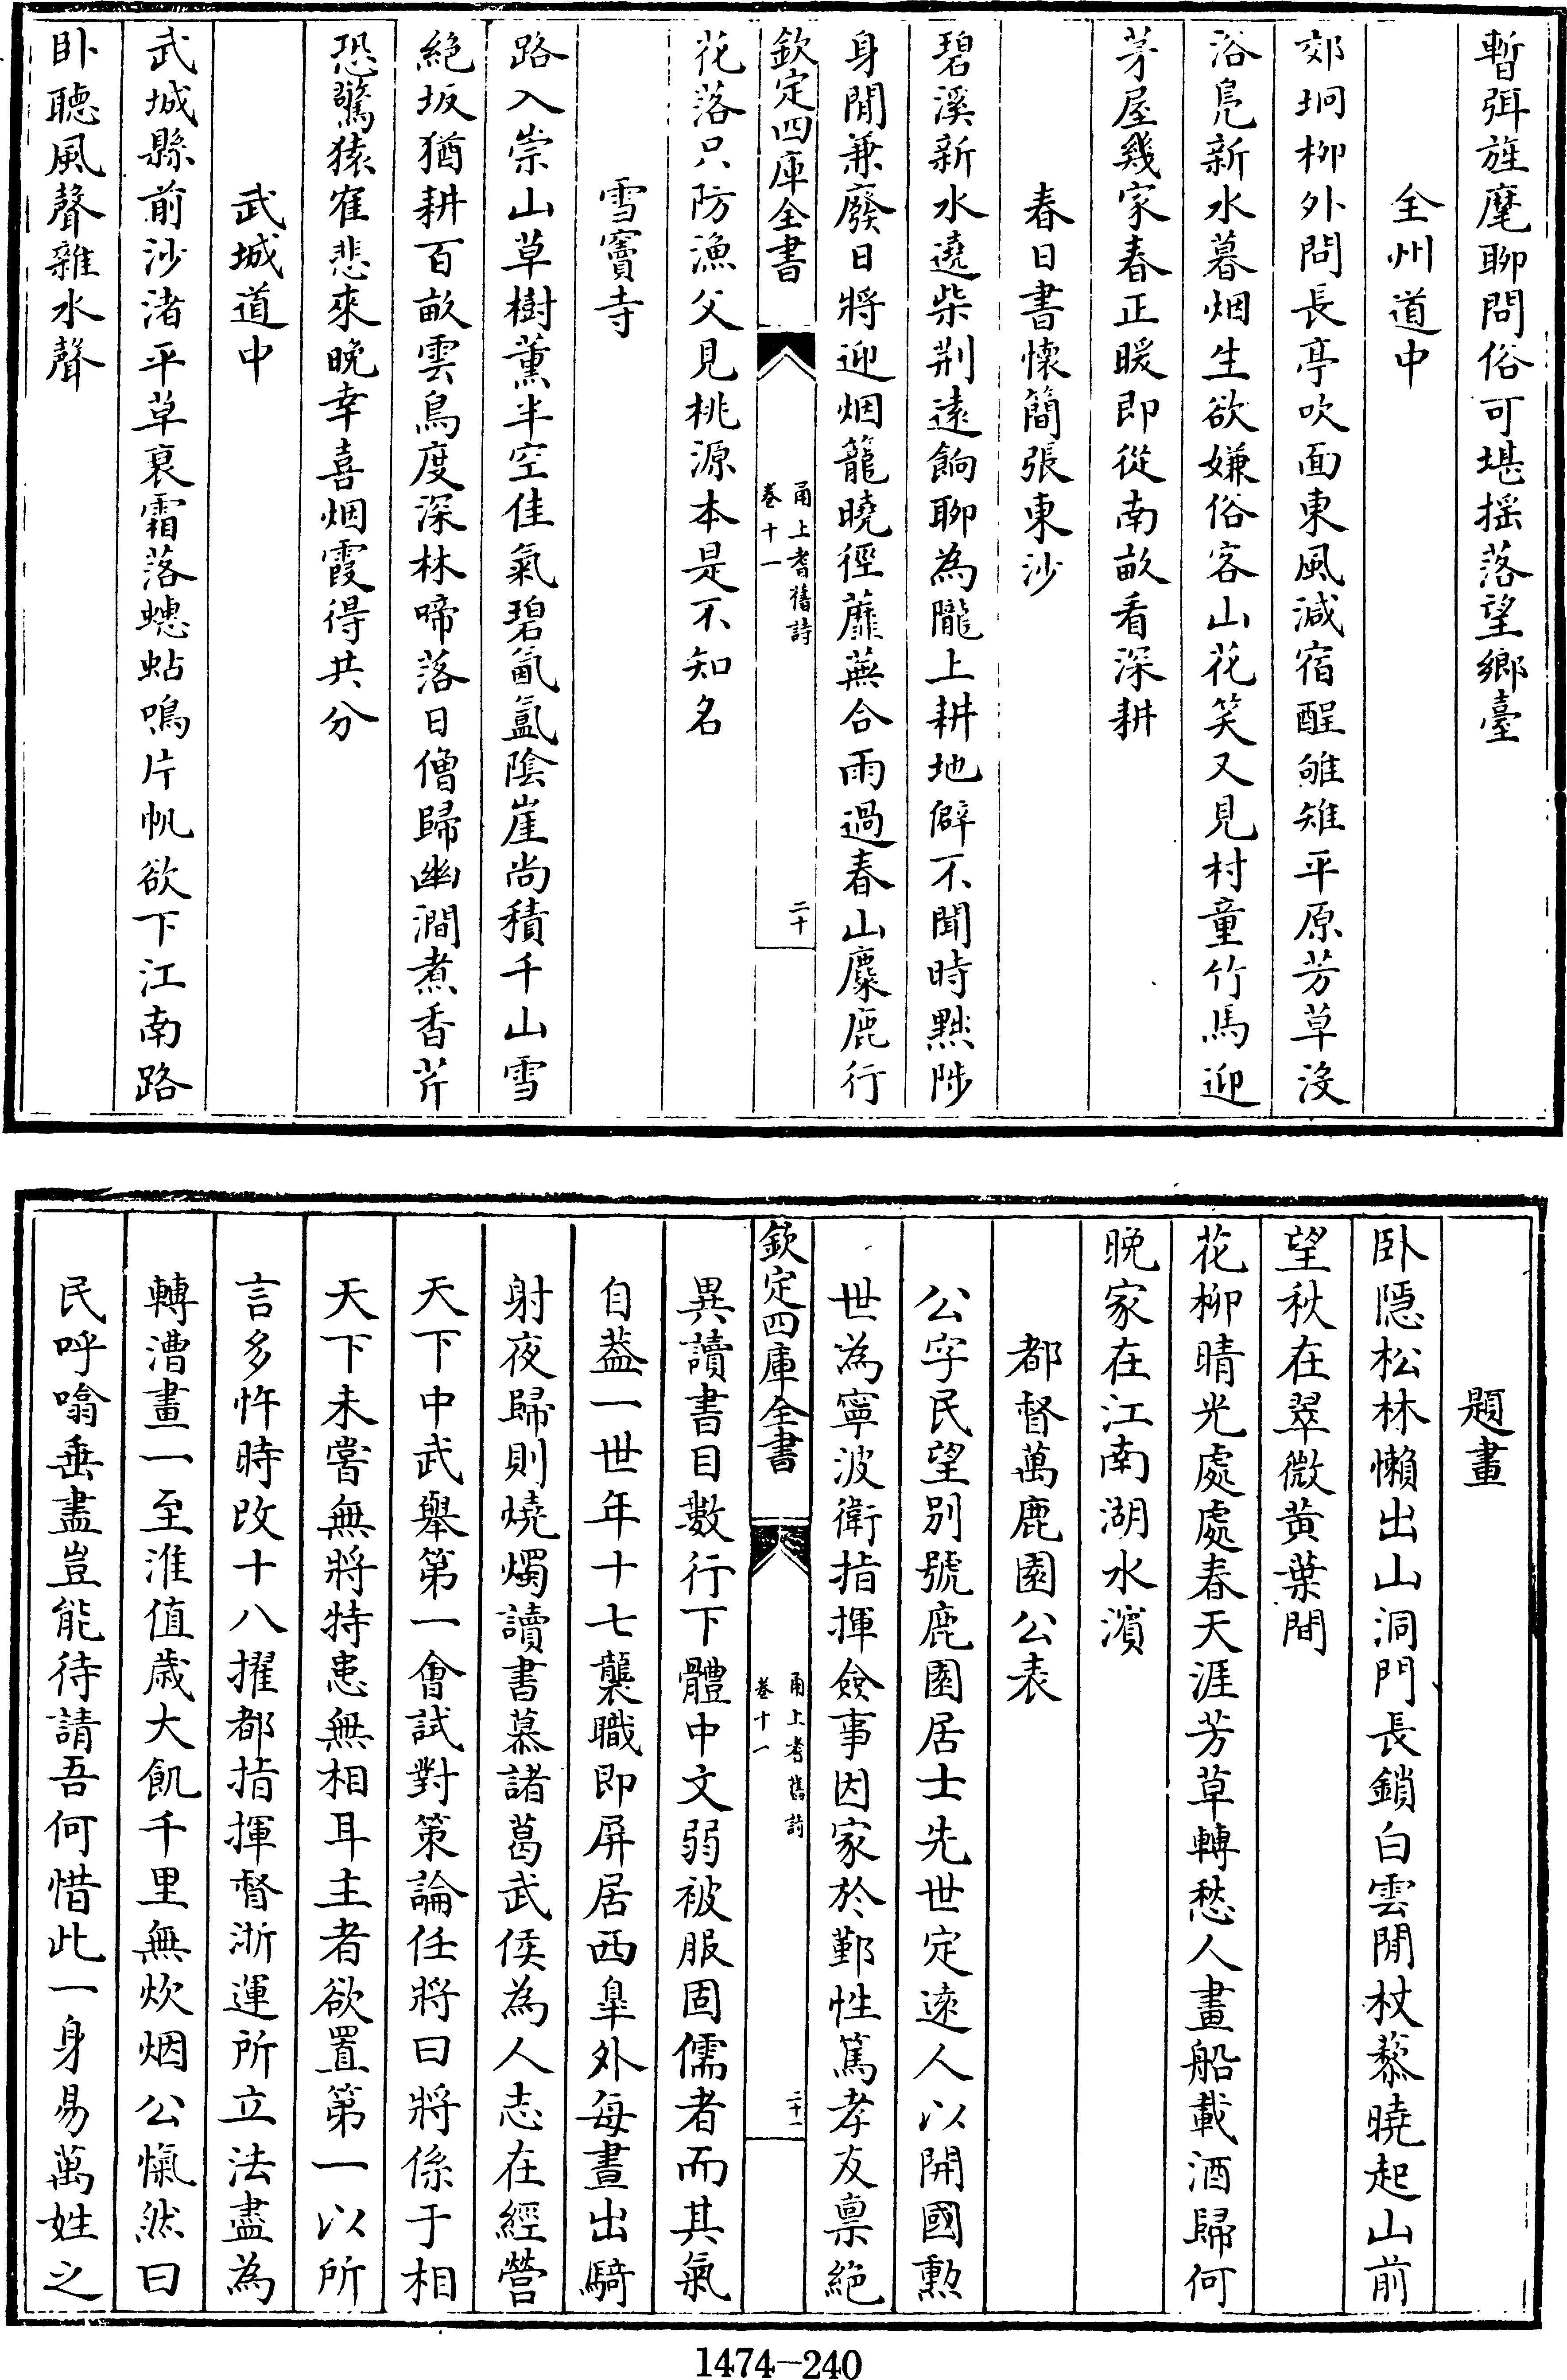 暫弭旌麾聊問俗可堪摇落望鄉臺
全州道中
郊坰柳外問長亭吹面東風減宿酲雊雉平原芳草沒
浴鳬新水暮烟生欲嫌俗客山花笑又見村童竹馬迎
茅屋幾家春正暖即從南畝看深耕
春日書懷簡張東沙
碧溪新水遶柴荆逺餉聊為隴上耕地僻不聞時㸃陟
身閒兼廢日將迎烟籠曉徑蘼蕪合雨過春山麋鹿行
欽定四庫全書
甬上耆舊詩
卷十一
二十
花落只防漁父見桃源本是不知名
雪竇寺
路入崇山草樹薰半空佳氣碧氤氳陰崖尚積千山雪
絶坂猶耕百畝雲鳥度深林啼落日僧歸幽澗煮香芹
恐驚猿寉悲來晚幸喜烟霞得共分
武城道中
武城縣前沙渚平草衰霜落蟋蛄鳴片帆欲下江南路
卧聽風聲雜水聲
題畫
卧隱松林懶出山洞門長鎖白雲閒杖藜曉起山前
望秋在翠微黄葉間
花柳晴光處處春天涯芳草轉愁人畫船載酒歸何
晚家在江南湖水濱
都督萬鹿園公表
公字民望别號鹿園居士先世定逺人以開國勲
世為寧波衛指揮僉事因家於鄞性篤孝友禀絶
欽定四庫全書
甬上耆舊詩
卷十一
二十一
異讀書目數行下體中文弱被服固儒者而其氣
自葢一世年十七襲職即屏居西臯外每晝出騎
射夜歸則燒燭讀書慕諸葛武侯為人志在經營
天下中武舉第一會試對策論任將曰將係于相
天下未嘗無將特患無相耳主者欲置第一以所
言多忤時改十八擢都指揮督浙運所立法盡為
轉漕畫一至淮值歲大飢千里無炊烟公愾然曰
民呼噏垂盡豈能待請吾何惜此一身易萬姓之
1474-240